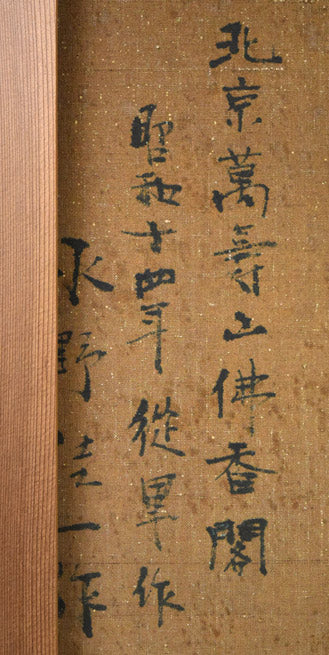 北京萬壽山佛香閣
昭和十四年 從軍作
野 一作